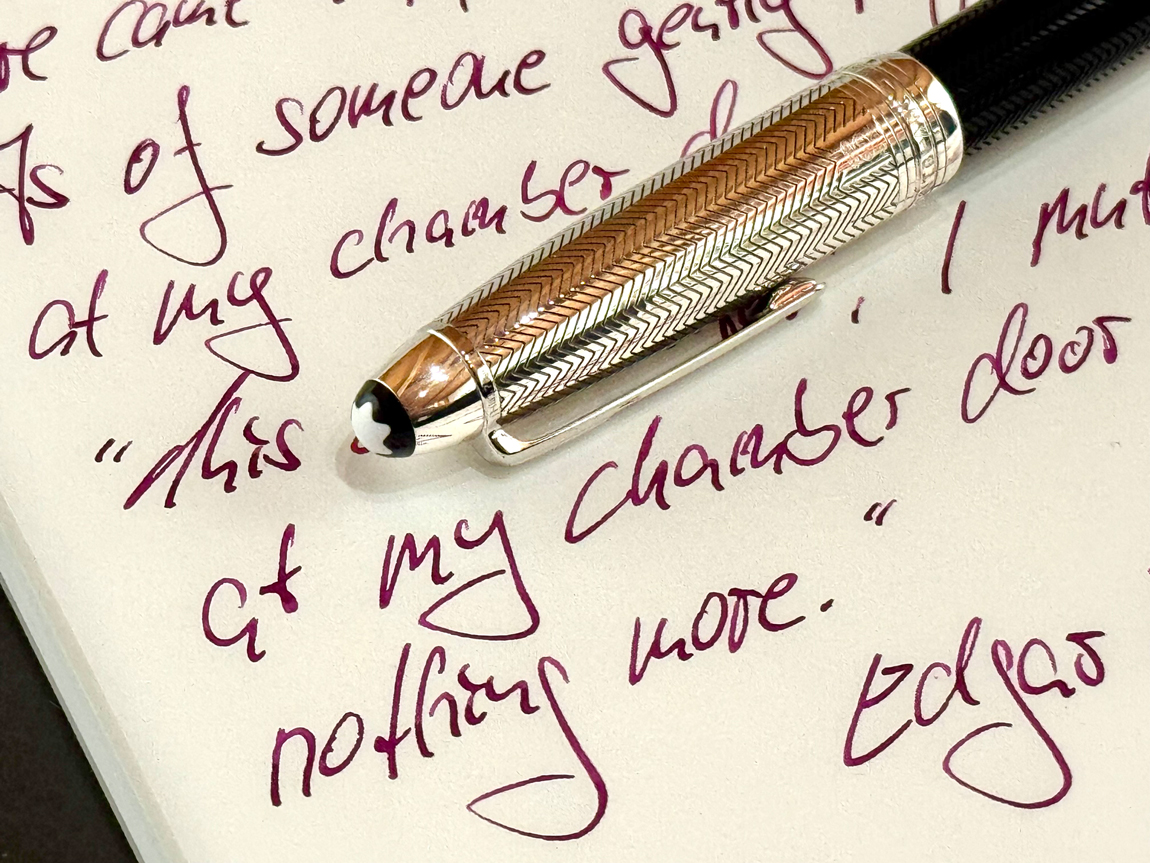 came
As of someone gently
at my chamber
I
"this
at my chamber door
"
nothing more.
Edgar